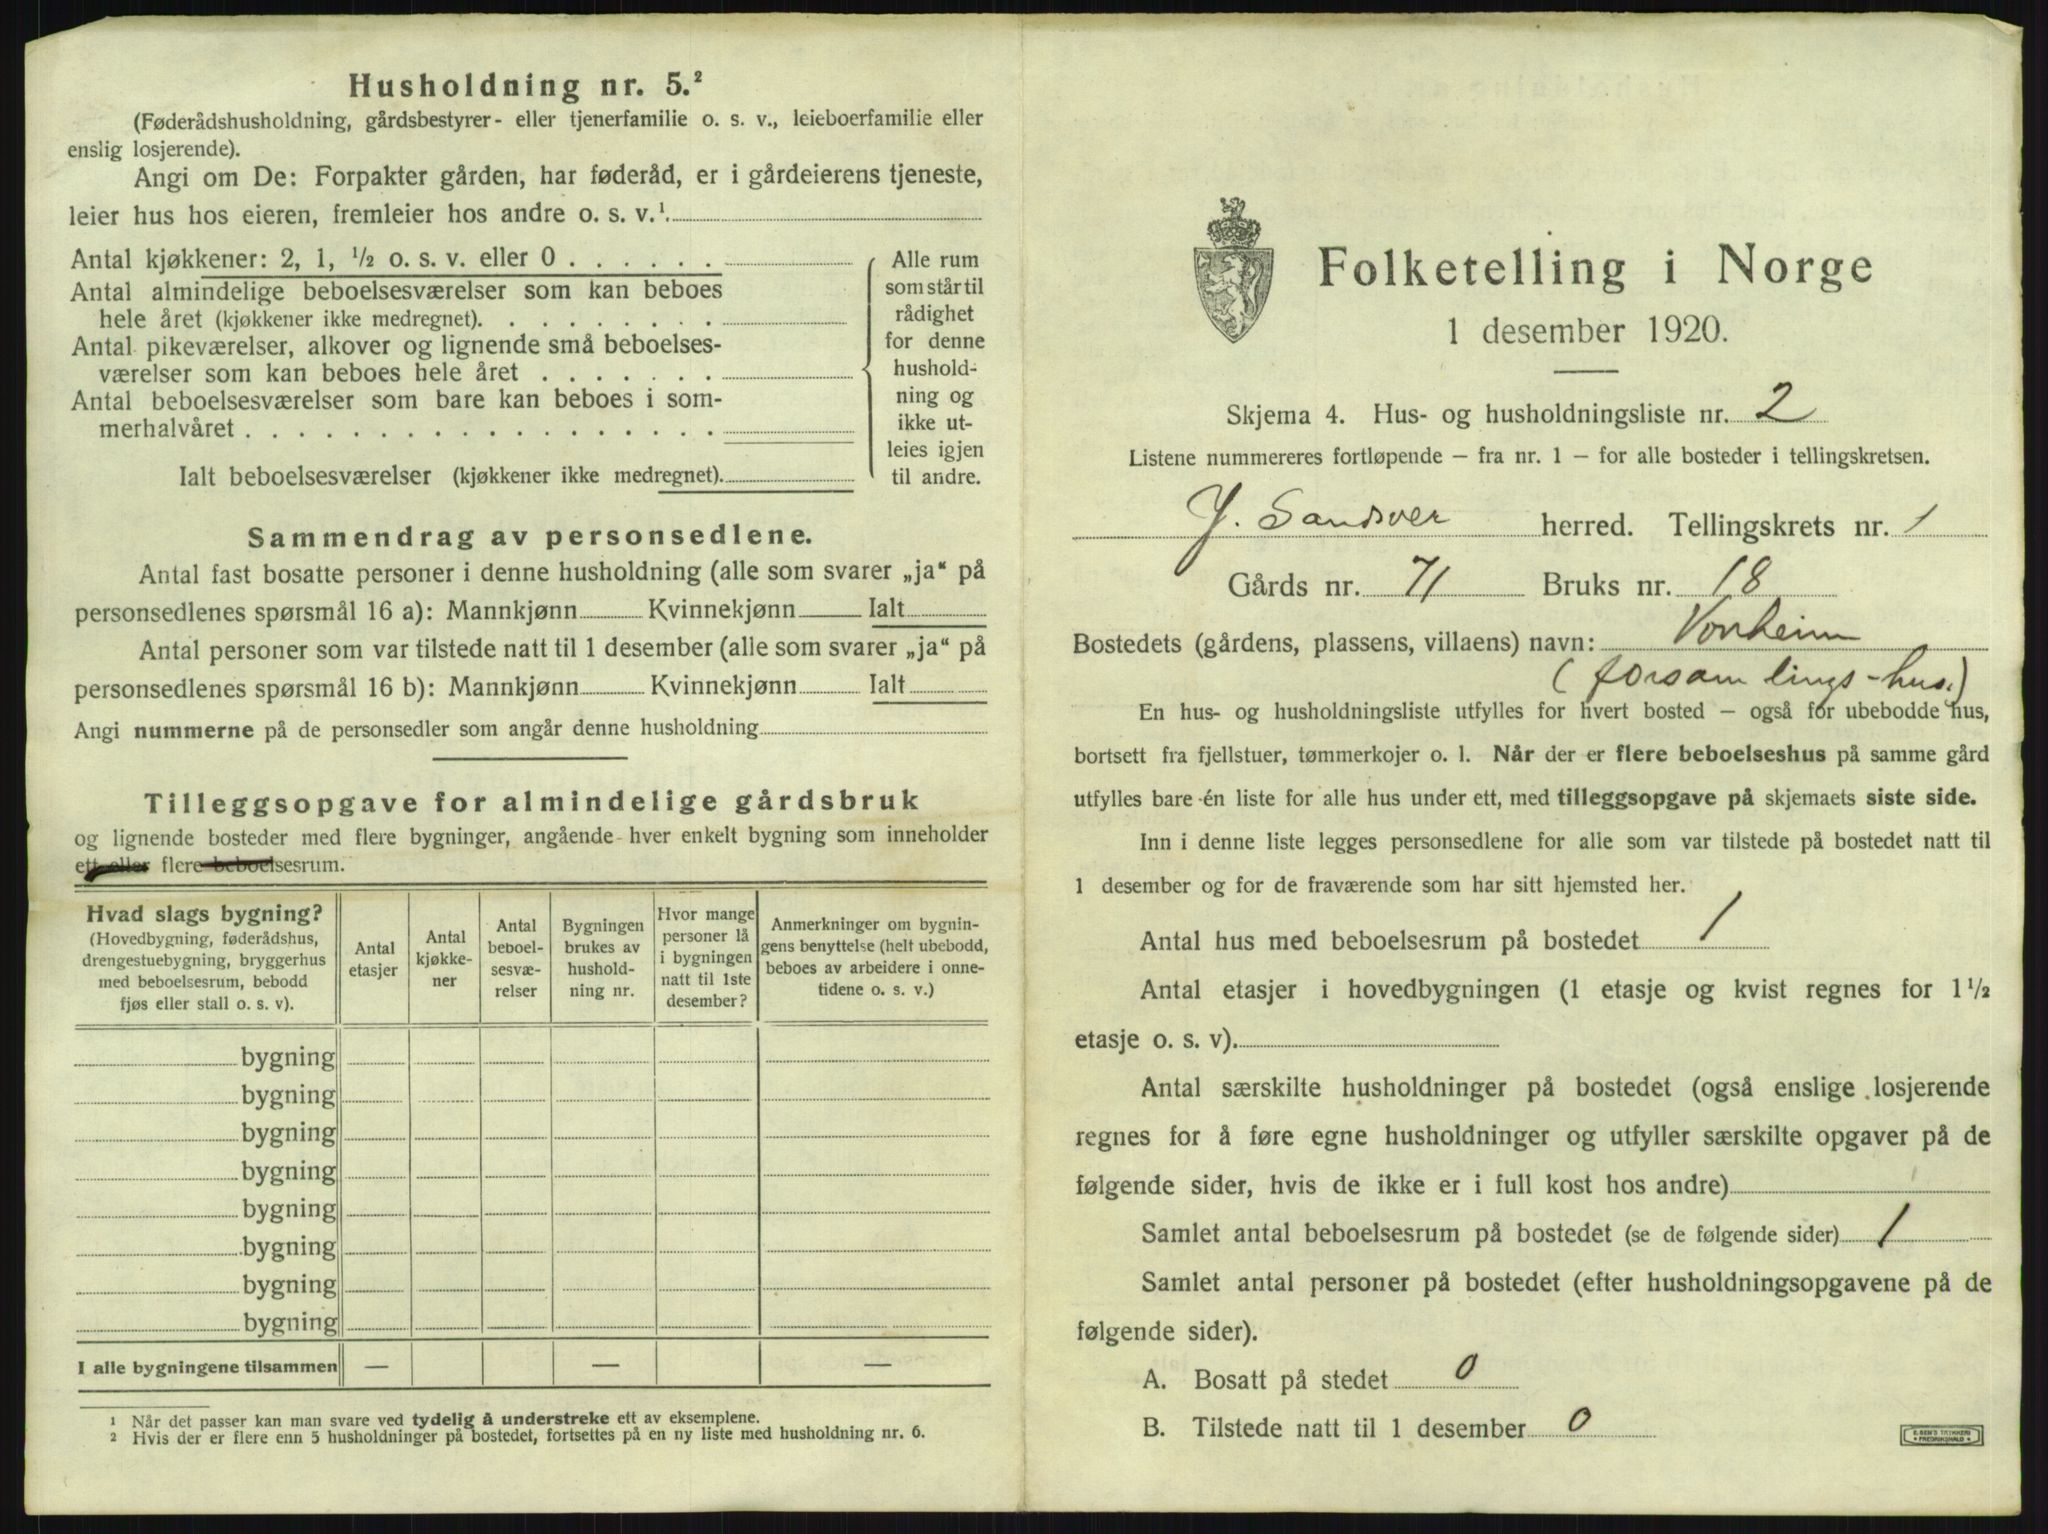 Husholdning nr. 5.²
(Føderådshusholdning, gårdsbestyrer- eller tjenerfamilie o. s. v., leieboerfamilie eller
enslig losjerende).
Angi om De: Forpakter gården, har føderåd, er i gårdeierens tjeneste,
leier hus hos eieren, fremleier hos andre o. s. v.¹.
Antal kjøkkener: 2, 1, ½ o. s. v. eller 0 . . . . . .
Antal almindelige beboelsesværelser som kan beboes
hele året (kjøkkener ikke medregnet). . . . . . . . .
Antal pikeværelser, alkover og lignende små beboelses-
værelser som kan beboes hele året . . . . . . .
Antal beboelsesværelser som bare kan beboes i som-
merhalvåret . . . . . . . . . . . . . . . . . .
Ialt beboelsesværelser (kjøkkener ikke medregnet).
Alle rum
som står til
rådighet
for denne
hushold-
ning og
ikke ut-
leies igjen
til andre.
Sammendrag av personsedlene.
Antal fast bosatte personer i denne husholdning (alle som svarer „ja“ på
personsedlenes spørsmål 16 a): Mannkjønn Kvinnekjønn Ialt
Antal personer som var tilstede natt til 1 desember (alle som svarer „ja“ på
personsedlenes spørsmål 16 b): Mannkjønn Kvinnekjønn Ialt
Angi nummerne på de personsedler som angår denne husholdning
Tilleggsopgave for almindelige gårdsbruk
og lignende bosteder med flere bygninger, angående hver enkelt bygning som inneholder
ett eller flere beboelsesrum.
Hvad slags bygning?
(Hovedbygning, føderådshus,
drengestuebygning, bryggerhus
med beboelsesrum, bebodd
fjøs eller stall o. s. v).
Antal
etasjer
Antal
kjøkke-
ner
Antal
beboel-
sesvæ-
relser
Bygningen
brukes av
hushold-
ning nr.
Hvor mange
personer lå
i bygningen
natt til 1ste
desember?
Anmerkninger om bygnin-
gens benyttelse (helt ubebodd,
beboes av arbeidere i onne-
tidene o. s. v.)
bygning
bygning
bygning
bygning
bygning
bygning
bygning
bygning
I alle bygningene tilsammen — — —
¹ Når det passer kan man svare ved tydelig å understreke ett av eksemplene.
² Hvis der er flere enn 5 husholdninger på bostedet, fortsettes på en ny liste med husholdning nr. 6.
Folketelling i Norge
1 desember 1920.
Skjema 4. Hus- og husholdningsliste nr. 2
Listene nummereres fortløpende – fra nr. 1 – for alle bosteder i tellingskretsen.
Y. Sandsver herred. Tellingskrets nr. 1
Gårds nr. 71 Bruks nr. 18
Bostedets (gårdens, plassens, villaens) navn: Vonheim
(forsamlings-hus.)
En hus- og husholdningsliste utfylles for hvert bosted – også for ubebodde hus,
bortsett fra fjellstuer, tømmerkojer o. l. Når der er flere beboelseshus på samme gård
utfylles bare én liste for alle hus under ett, med tilleggsopgave på skjemaets siste side.
Inn i denne liste legges personsedlene for alle som var tilstede på bostedet natt til
1 desember og for de fraværende som har sitt hjemsted her.
Antal hus med beboelsesrum på bostedet 1
Antal etasjer i hovedbygningen (1 etasje og kvist regnes for 1½
etasje o. s. v).
Antal særskilte husholdninger på bostedet (også enslige losjerende
regnes for å føre egne husholdninger og utfyller særskilte opgaver på de
følgende sider, hvis de ikke er i full kost hos andre)
Samlet antal beboelsesrum på bostedet (se de følgende sider) 1
Samlet antal personer på bostedet (efter husholdningsopgavene på de
følgende sider).
A. Bosatt på stedet 0
B. Tilstede natt til 1 desember 0